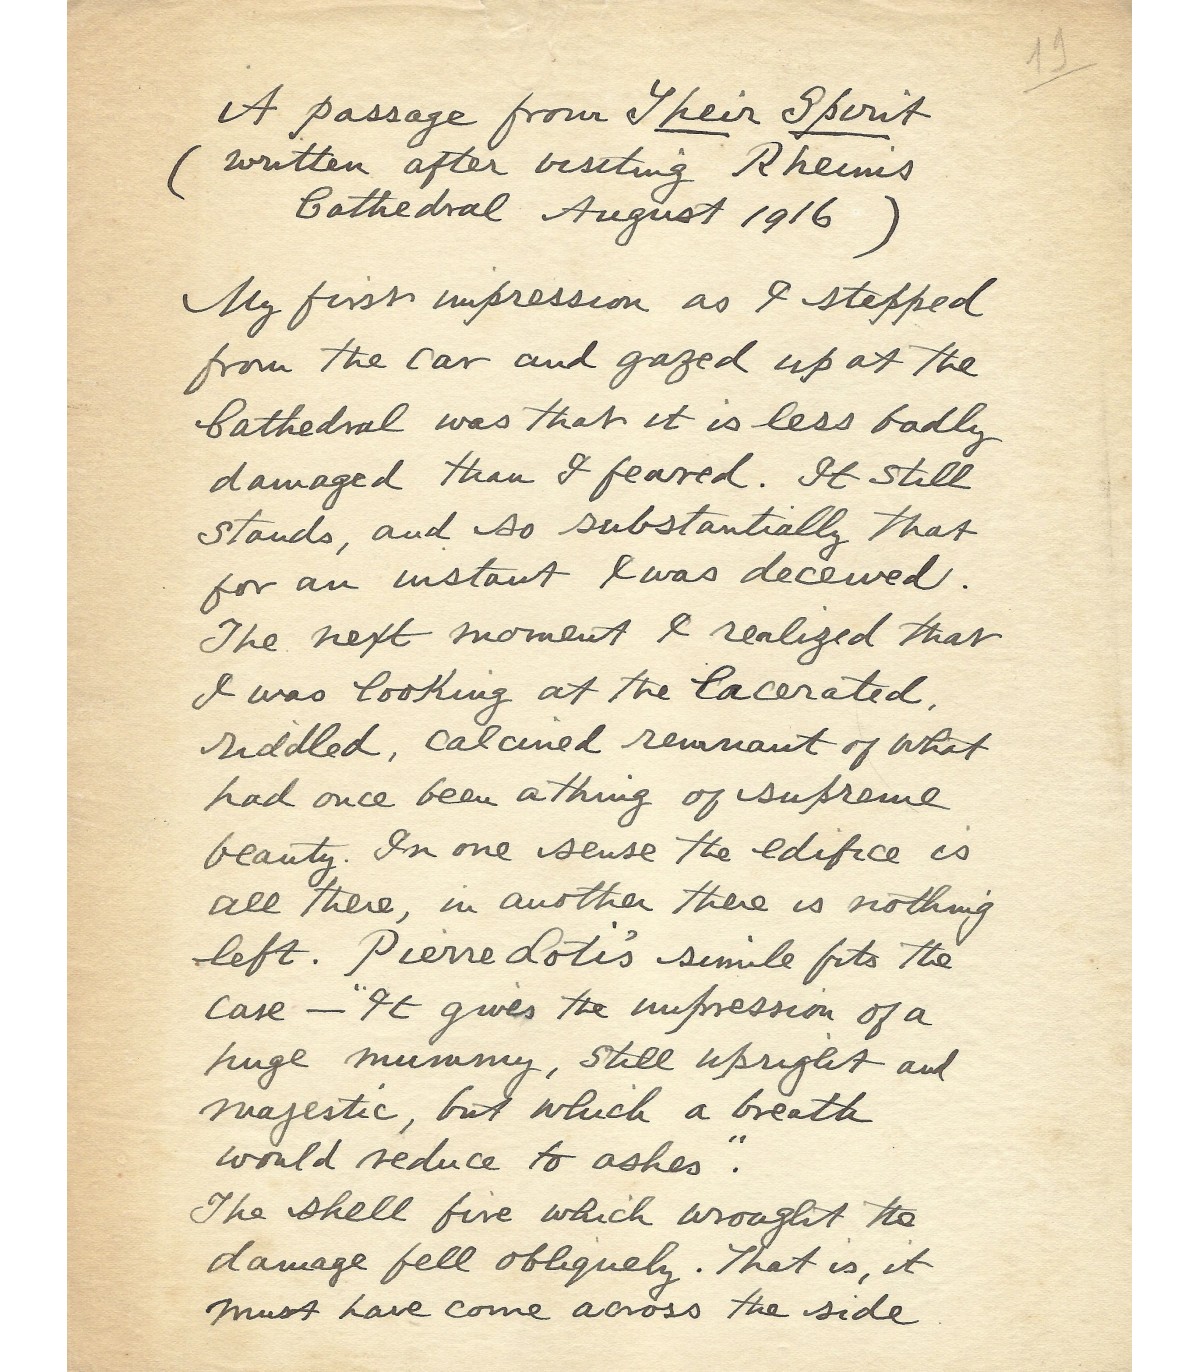 19
A passage from Their Spirit
( written after visiting Rheims
Cathedral August 1916 )
My first impression as I stepped
from the car and gazed up at the
Cathedral was that it is less badly
damaged than I feared. It still
stands, and so substantially that
for an instant I was deceived.
The next moment I realized that
I was looking at the lacerated,
riddled, calcined remnant of what
had once been a thing of supreme
beauty. In one sense the edifice is
all there, in another there is nothing
left. Pierre Loti's simile fits the
case — "It gives the impression of a
huge mummy, still upright and
majestic, but which a breath
would reduce to ashes".
The shell fire which wrought the
damage fell obliquely. That is, it
must have come across the side